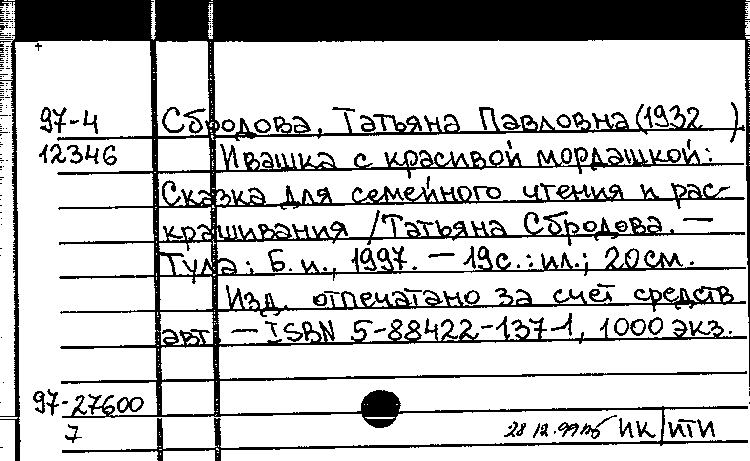 97-4 Сбродова, Татьяна Павловна (1932 ).
12346 Ивашка с красивой мордашкой:
Сказка для семейного чтения и рас-
крашивания / Татьяна Сбродова. —
Тула: Б. и., 1997. — 19с.: ил.; 20см.
Изд. отпечатано за счет средств
авт. — ISBN 5-88422-137-1, 1000 экз.
97-27600
7 28.12.99 ИК/ИТИ